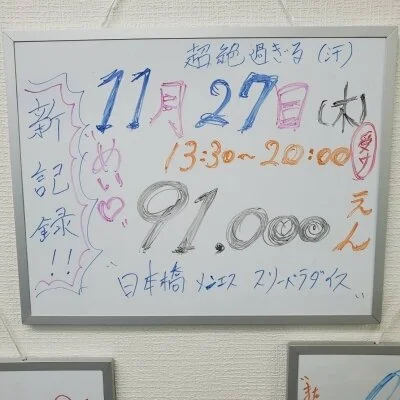 超絶過ぎる(汗)
11月27日(木)
13:30〜20:00
新記録!!
めい♡
91.000えん
日本橋 メンエス スリーパラダイス